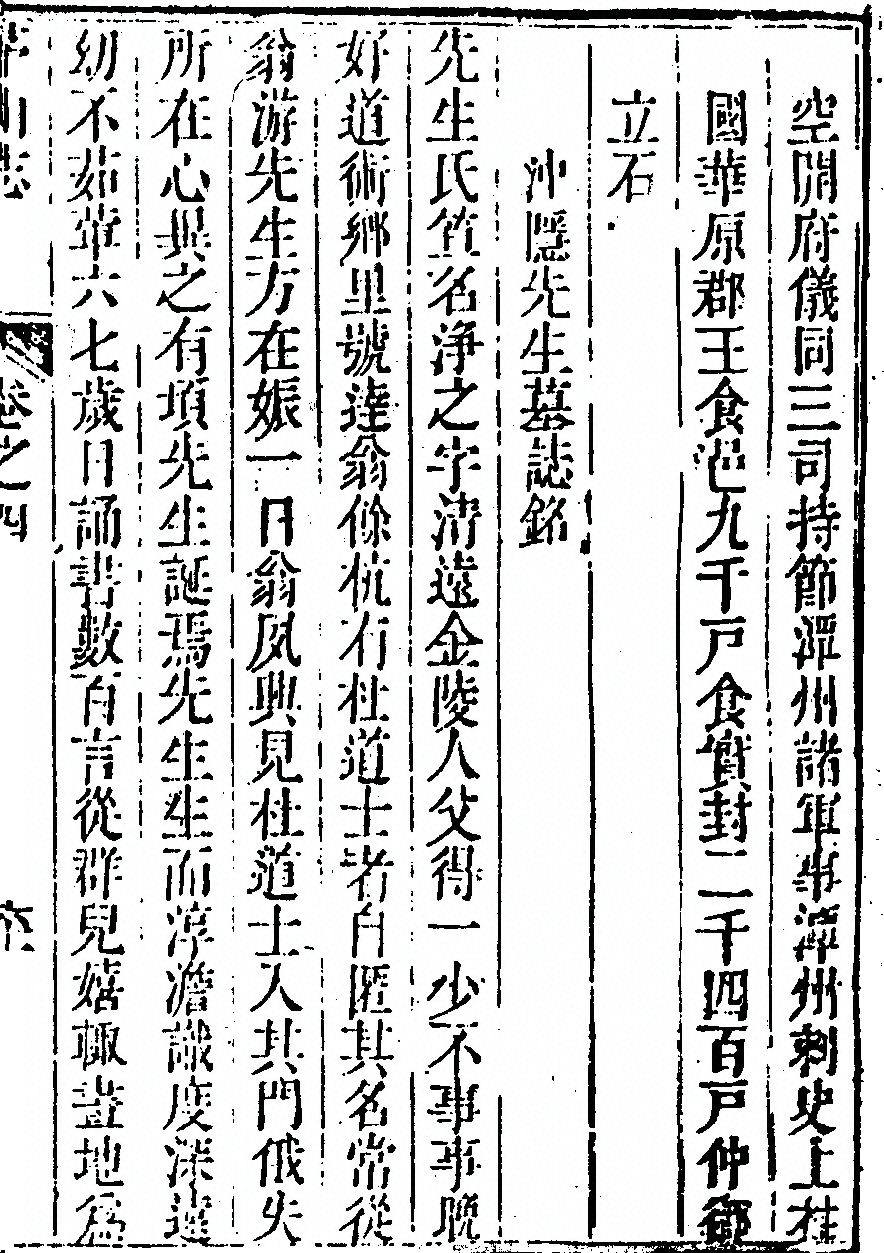 空開府儀同三司持節潭州諸軍事潭州刺史上柱
國華原郡王食邑九千戸食實封二千四百戸仲御
立石
沖隱先生墓誌銘
先生氏笪名淨之字清遠金陵人父得一少不事事晚
好道術鄉里號達翁餘杭有杜道士者自匿其名常從
翁游先生方在娠一日翁夙興見杜道士入其門俄失
所在心異之有頃先生誕焉先生生而淳澹識度深遠
幼不茹葷六七歲日誦書數百言從群兒嬉輒畫地爲
茅山志
卷之四